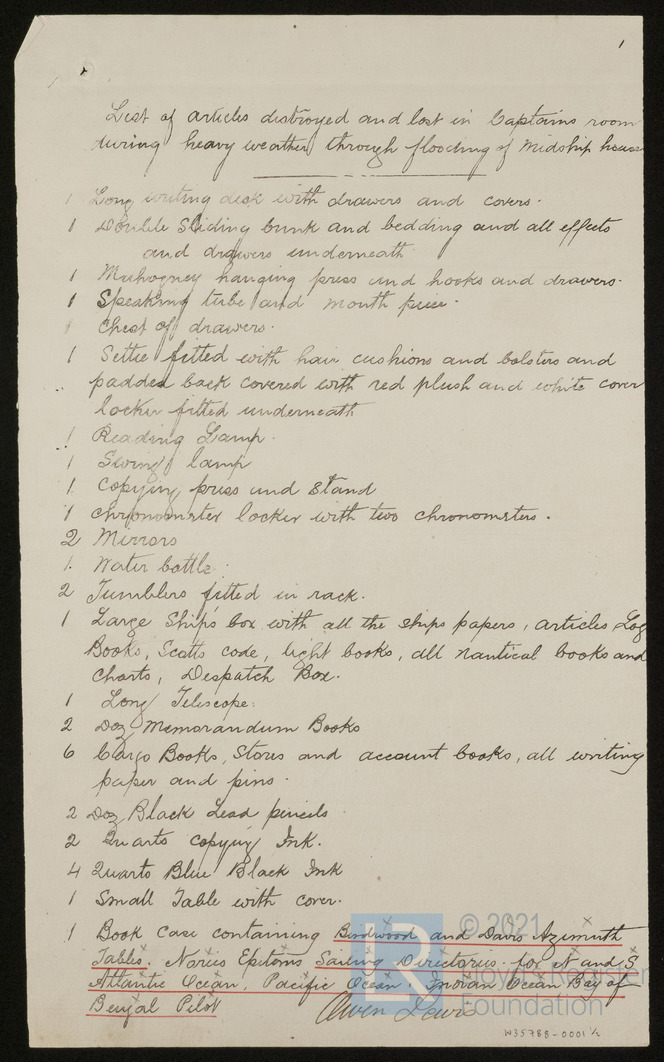 1
List of articles destroyed and lost in Captains room
during heavy weather through flooding of Midship house
1 Long writing desk with drawers and covers.
1 Double Sliding bunk and bedding and all effects
and drawers underneath
1 Muhogney hanging press and hooks and drawers.
1 Speaking tube and mouth piece.
1 Chest of drawers.
1 Settie fitted with hair cushions and bolsters and
padded back covered with red plush and white cover
locker fitted underneath
1 Reading Lamp.
1 Swing lamp
1 Copying press and Stand
1 Chronometer locker with two chronometers.
2 Mirrors
1. Water bottle.
2 Tumblers fitted in rack.
1 Large Ship's box with all the ships papers, articles, Log
Books, Scotts code, light books, all nautical books and
charts, Despatch Box.
1 Long Telescope.
2 Doz Memorandum Books
6 Cargo Books, Stores and account books, all writing
paper and pins.
2 Doz Black Lead pencils
2 Quarts Copying Ink.
4 Quarts Blue Black Ink
1 Small Table with cover.
1 Book Case containing Birdwood and Davis Azimuth
Tables. Nories Epitoms Sailing Directories. for N and S
Atlantic Ocean, Pacific Ocean, Indian Ocean Bay of
Bengal Pilot
Owen Lewis
W35788-0001 1/2
© 2021
Lloyd's Register
Foundation
LR